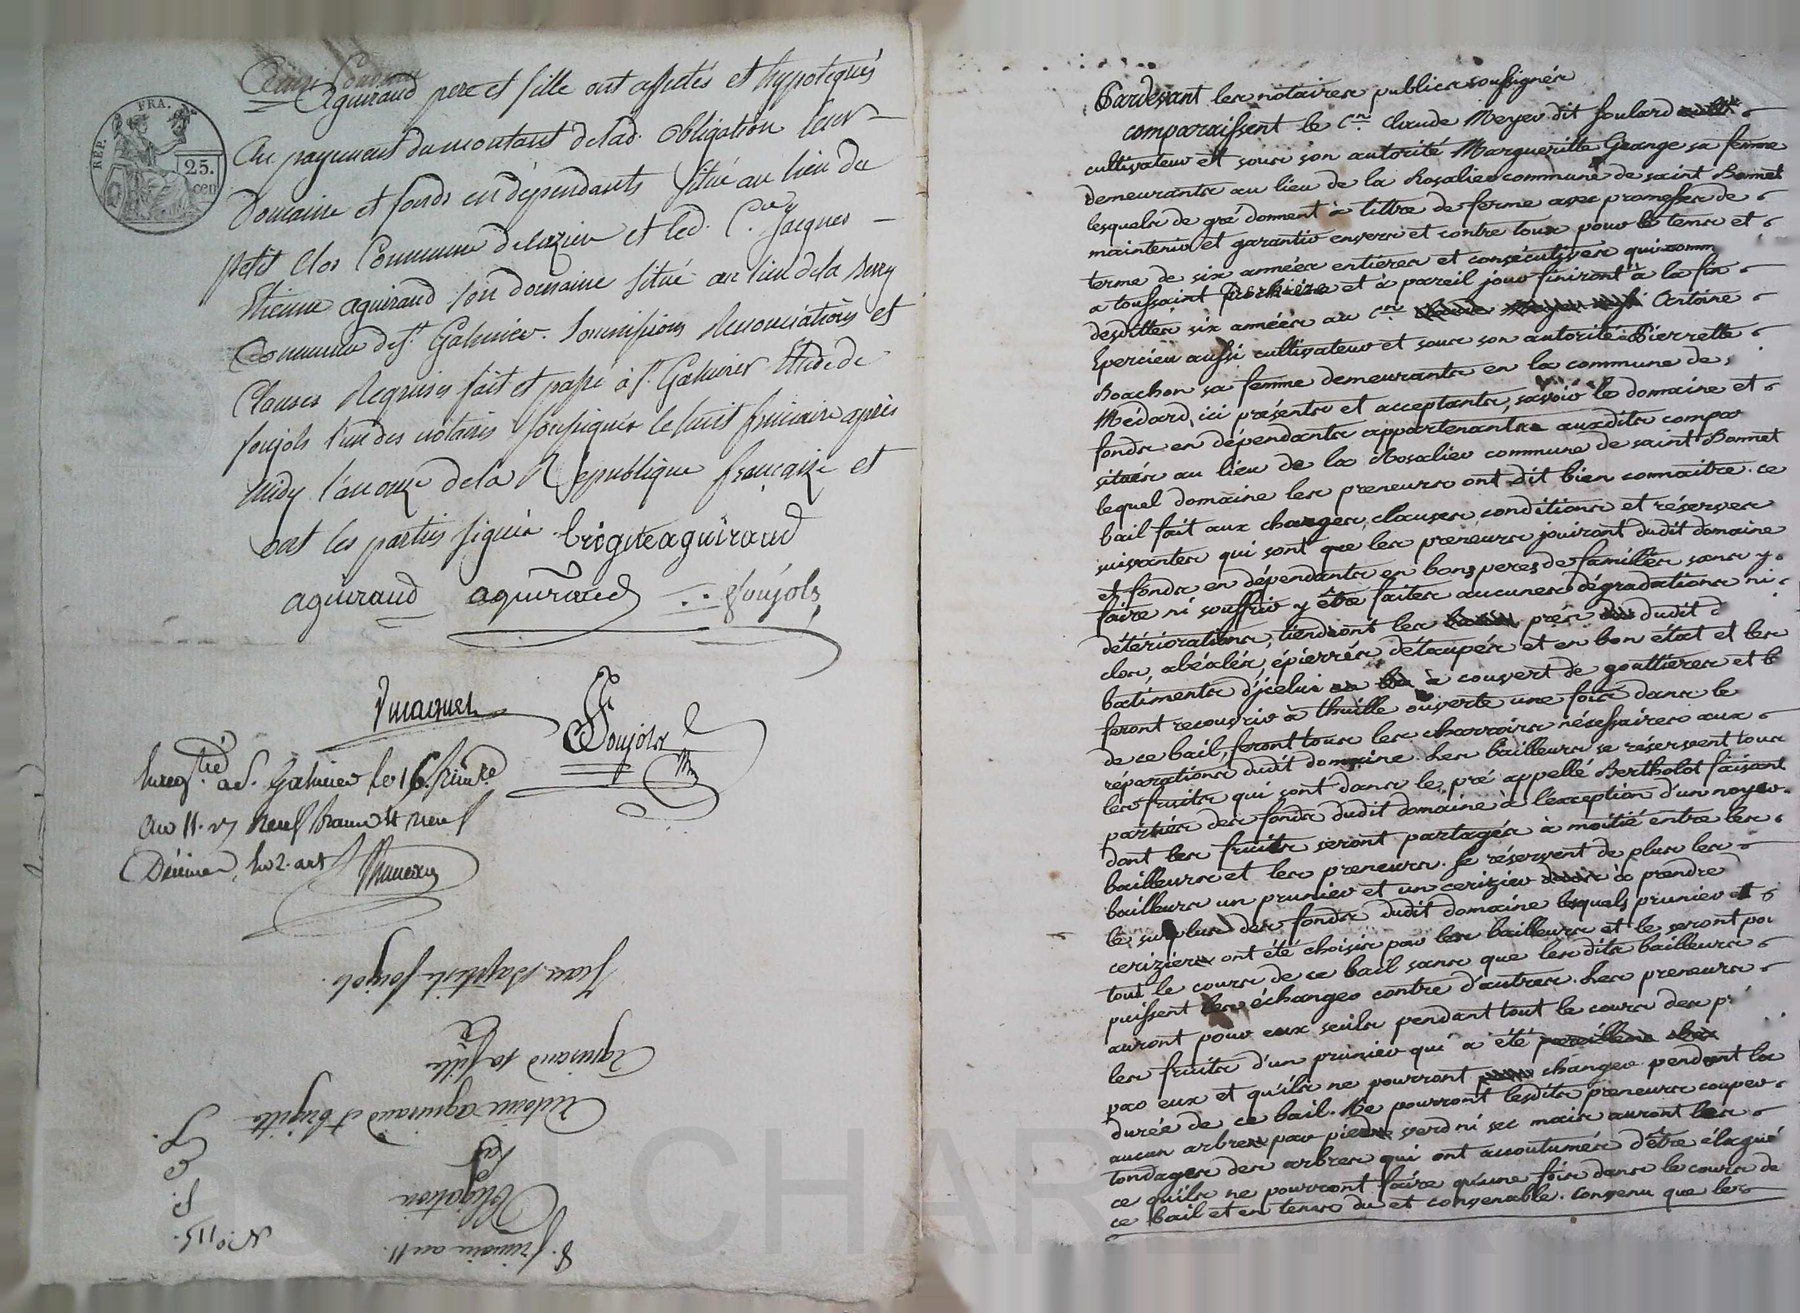 RÉP. FRA.
25. cen
aguiraud pere et fille ont affectés et hypotequés
au payement du montant de lad. obligation leur
Domaine et fonds en dépendants situé au lieu du
petit Clos Commune de et led. C. Jacques
Etienne aguiraud son domaine situé au lieu de la
Commune de St. Galmier. Soumissions Renonciations et
Clauses Requises fait et passé à St. Galmier Etude de
soujols l'un des notaires soussignés le huit frimaire après
midy l'an onze de la République française et
ont les parties signés brigite aguiraud
aguiraud aguiraud soujols
Soujols
à St. Galmier le 16. frim.re
an 11. neuf francs neuf
Décimes
Jean Baptiste soujols
aguiraud sa fille
antoine aguiraud et brigitte
Obligation
8. frimaire an 11.
N.º 115.
Pardevant les notaires publics soussignés
comparaissent le C.en Claude Meyer dit foulard
cultivateur et sous son autorité Margueritte Grange sa femme
demeurants au lieu de la Rosalier commune de saint Bonnet
lesquels de gré donnent à tittre de ferme avec promesse de
maintenir et garantir envers et contre tous pour le tems et
terme de six années entieres et consécutives qui comm
a toussaint prochaine et à pareil jour finiront à la fin
desdittes six années au C.en Antoine
Epercieu aussi cultivateur et sous son autorité Pierrette
Boachon sa femme demeurants en la commune de
Médard, ici présents et acceptants, savoir le domaine et
fonds en dépendants appartenants auxdits compar
situés au lieu de la Rosalier commune de saint Bonnet
lequel domaine les preneurs ont dit bien connaitre. ce
bail fait aux charges, clauses conditions et réserves
suivantes qui sont que les preneurs jouiront dudit domaine
et fonds en dépendants en bons peres de famille sans y
faire ni souffrir y être faites aucunes dégradations ni
détériorations, tiendront les prés dudit d
clos, aléalés, épierrés détaupés et en bon état et les
batiments d'jcelui à couvert de gouttieres et l
feront recouvrir à thuille ouverte une fois dans le
de ce bail, feront tous les charrois nécessaires aux
réparations dudit domaine. Les bailleurs se réservent tous
les fruits qui sont dans le pré appellé Bertholot faisant
parties des fonds dudit domaine à l'exception d'un noyer
dont les fruits seront partagés à moitié entre les
bailleurs et les preneurs. Se réservent de plus les
bailleurs un prunier et un cerizier à prendre
le surplus des fonds dudit domaine lesquels prunier et
cerizier ont été choisis par les bailleurs et le seront po
tout le cours de ce bail sans que lesdits bailleurs
puissent les échanger contre d'autres. Les preneurs
auront pour eux seuls pendant tout le cours des p
les fruits d'un prunier qui a été
par eux et qu'ils ne pourront changer pendant la
durée de ce bail. Ne pourront lesdits preneurs couper
aucun arbre par pied verd ni sec mais auront les
tondages des arbres qui ont accoutumés d'être élagué
ce qu'ils ne pourront faire qu'une fois dans le cours de
ce bail et en tems du et convenable. Convenu que les